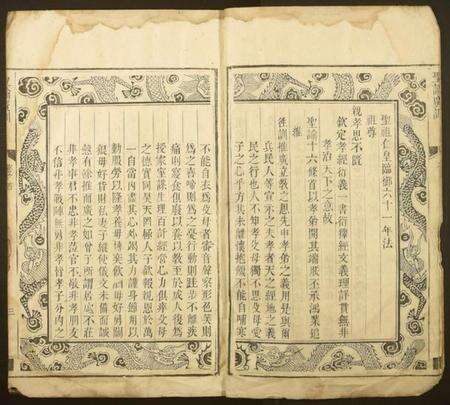 聖祖仁皇帝臨御六十一年法
祖尊
親孝思不匱
欽定孝經衍義一書衍釋經文義理詳貫無非
孝治天下之意故
聖諭十六條首以孝弟開其端朕丕承鴻業追
維
往訓推廣立教之思先申孝弟之義用是與爾
兵民人等宣示之夫孝者天之經地之義
民之行也人不知孝父母獨不思父母愛
子之心乎方其未離懷抱饑不能自哺寒
不能自衣為父母者審音聲察形色笑則
為之喜啼則為之憂行動則跬步不離疾
痛則寢食俱廢以養以教至於成人復為
授家室謀生理百計經營心力俱瘁父母
之德實同昊天罔極人子欲報親恩於萬
一自當內盡其心外竭其力謹身節用以
勤服勞以隆孝養毋博奕飲酒毋好勇鬬
狠毋好貨財私妻子縱使儀文未備而誠
慤有餘推而廣之如曾子所謂居處不莊
非孝事君不忠非孝蒞官不敬非孝朋友
不信非孝戰陣無勇非孝皆孝子分內之